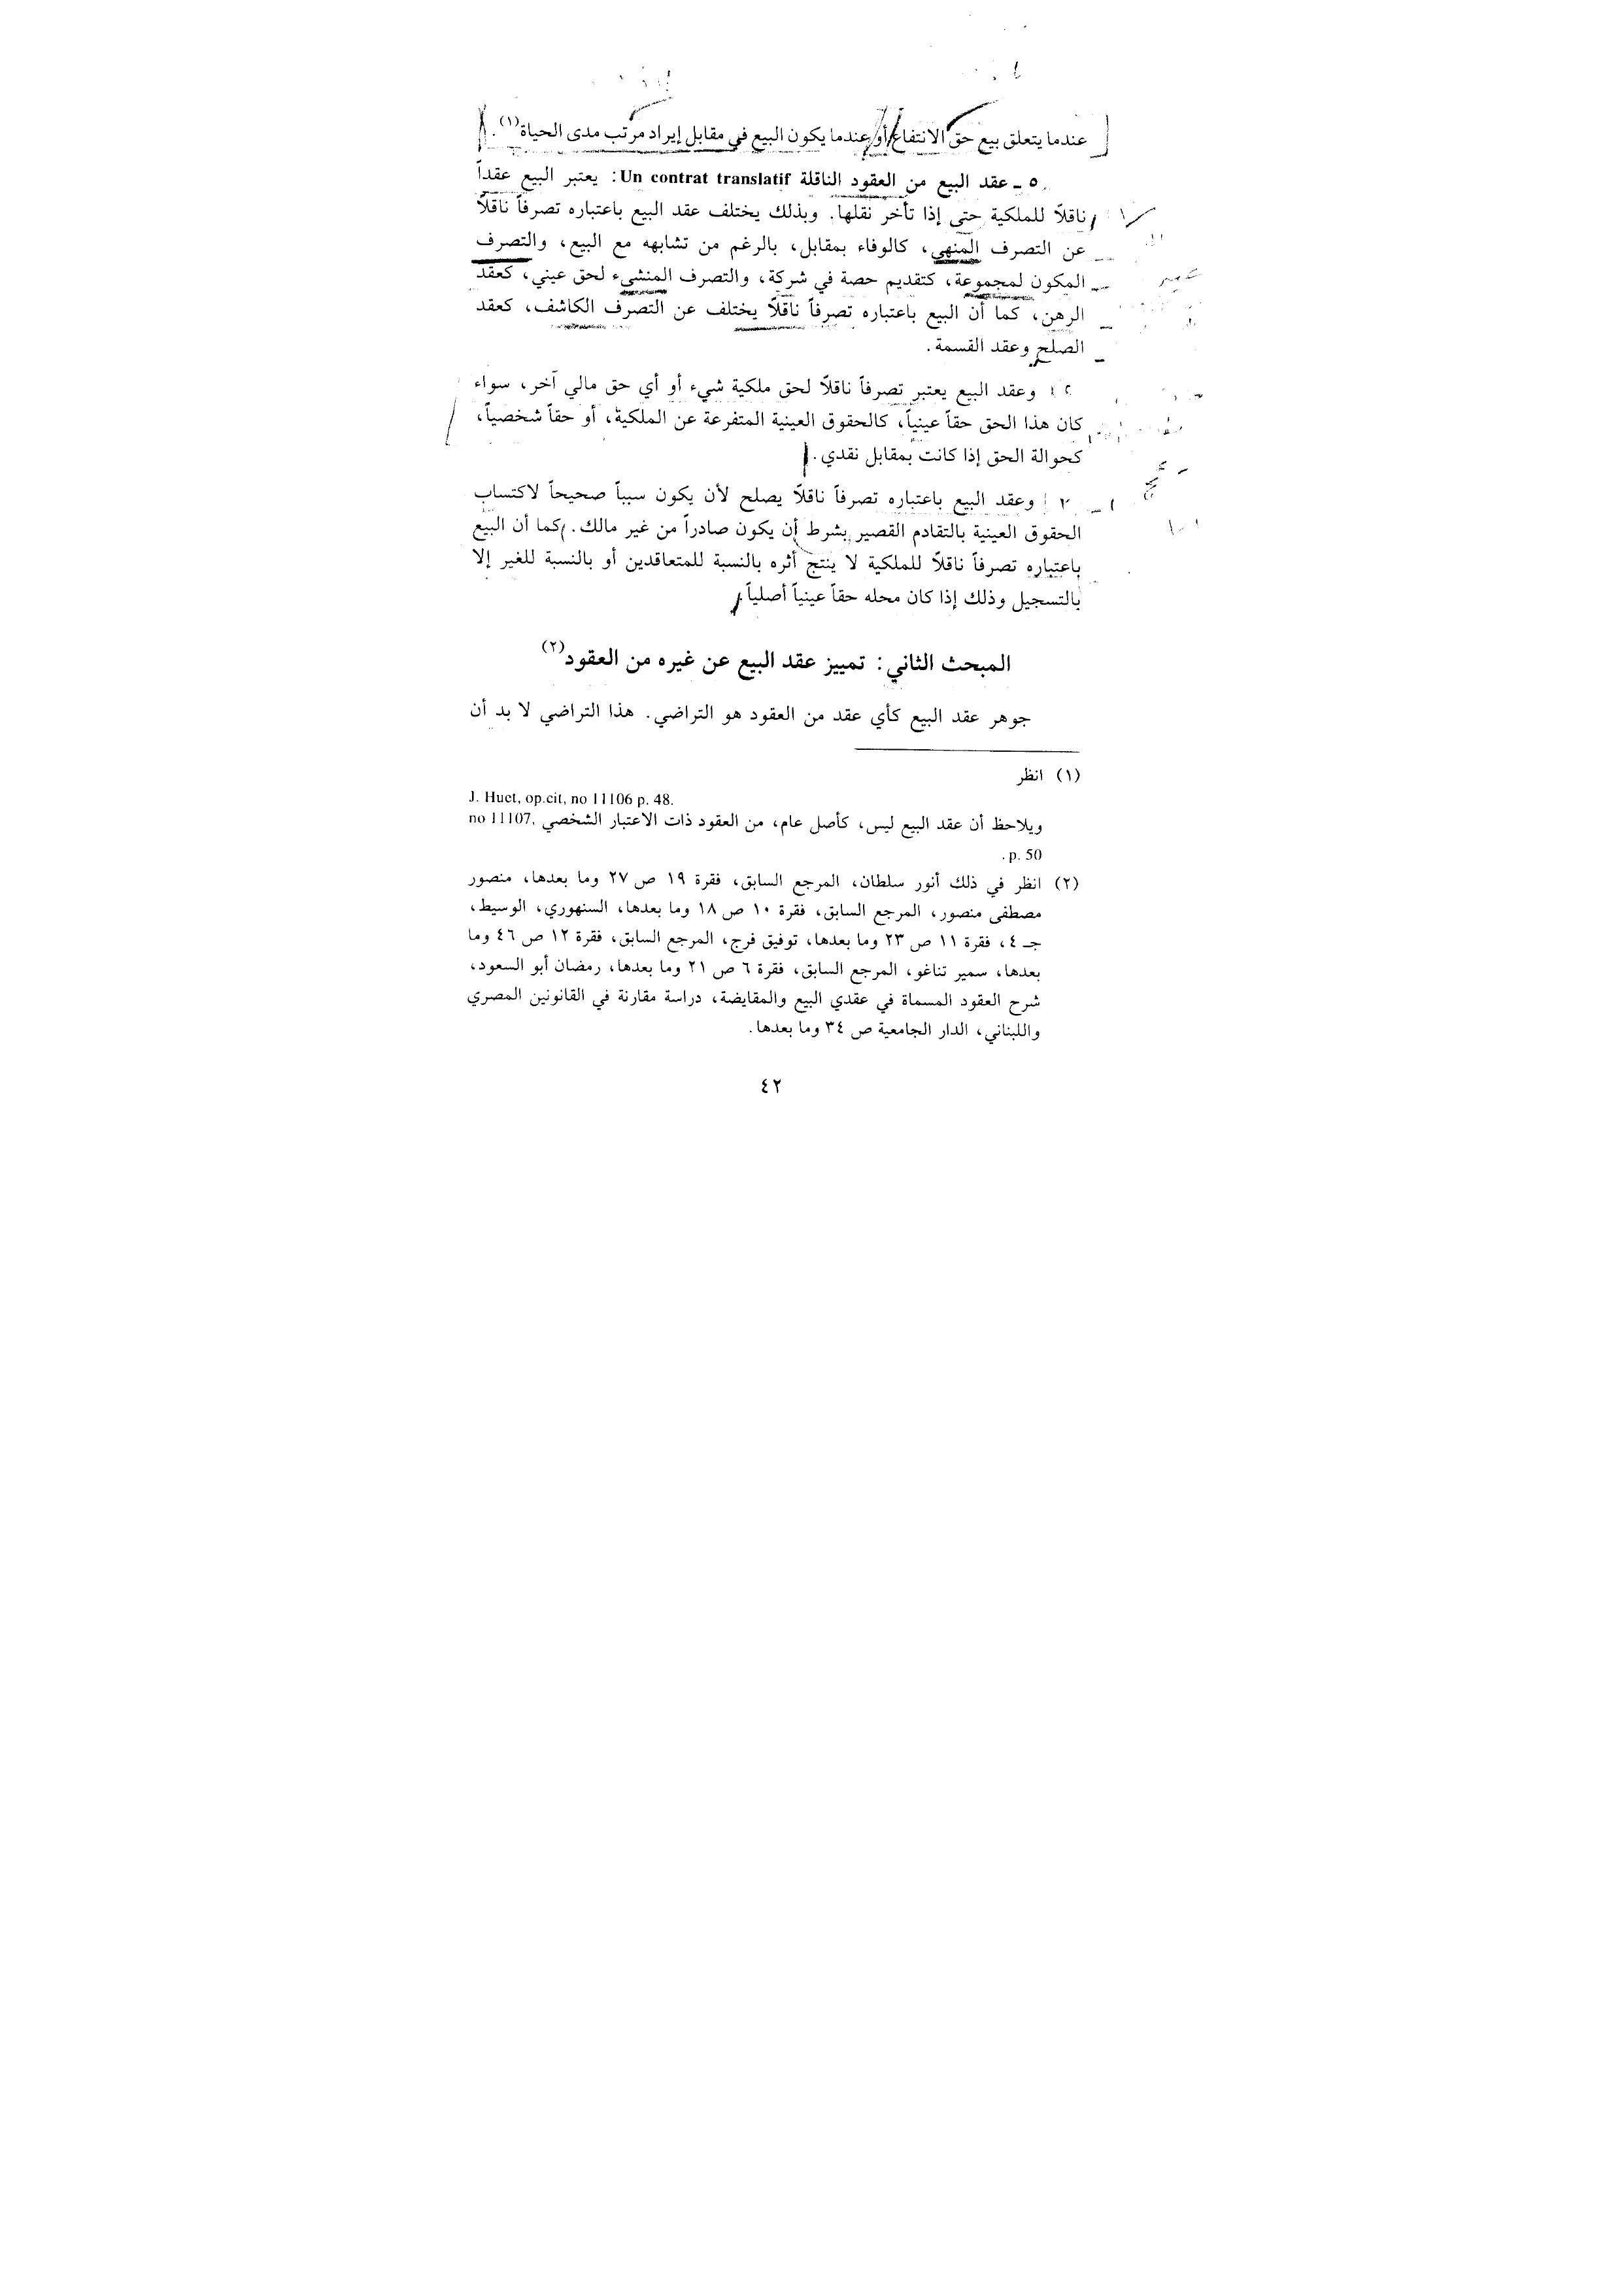 عندما يتعلق بيع حق الانتفاع أو عندما يكون البيع في مقابل إيراد مرتب مدى الحياة(١).
٥ ـ عقد البيع من العقود الناقلة Un contrat translatif: يعتبر البيع عقداً
ناقلاً للملكية حتى إذا تأخر نقلها. وبذلك يختلف عقد البيع باعتباره تصرفاً ناقلاً
عن التصرف المنهي، كالوفاء بمقابل، بالرغم من تشابهه مع البيع، والتصرف
المكون لمجموعة، كتقديم حصة في شركة، والتصرف المنشيء لحق عيني، كعقد
الرهن، كما أن البيع باعتباره تصرفاً ناقلاً يختلف عن التصرف الكاشف، كعقد
الصلح وعقد القسمة.
وعقد البيع يعتبر تصرفاً ناقلاً لحق ملكية شيء أو أي حق مالي آخر، سواء
كان هذا الحق حقاً عينياً، كالحقوق العينية المتفرعة عن الملكية، أو حقاً شخصياً،
كحوالة الحق إذا كانت بمقابل نقدي.
وعقد البيع باعتباره تصرفاً ناقلاً يصلح لأن يكون سبباً صحيحاً لاكتساب
الحقوق العينية بالتقادم القصير بشرط أن يكون صادراً من غير مالك. كما أن البيع
باعتباره تصرفاً ناقلاً للملكية لا ينتج أثره بالنسبة للمتعاقدين أو بالنسبة للغير إلا
بالتسجيل وذلك إذا كان محله حقاً عينياً أصلياً.
المبحث الثاني: تمييز عقد البيع عن غيره من العقود(٢)
جوهر عقد البيع كأي عقد من العقود هو التراضي. هذا التراضي لا بد أن
(١) انظر
J. Huet, op.cit, no 11106 p. 48.
ويلاحظ أن عقد البيع ليس، كأصل عام، من العقود ذات الاعتبار الشخصي no 11107,
p. 50.
(٢) انظر في ذلك أنور سلطان، المرجع السابق، فقرة ١٩ ص ٢٧ وما بعدها، منصور
مصطفى منصور، المرجع السابق، فقرة ١٠ ص ١٨ وما بعدها، السنهوري، الوسيط،
جـ ٤، فقرة ١١ ص ٢٣ وما بعدها، توفيق فرج، المرجع السابق، فقرة ١٢ ص ٤٦ وما
بعدها، سمير تناغو، المرجع السابق، فقرة ٦ ص ٢١ وما بعدها، رمضان أبو السعود،
شرح العقود المسماة في عقدي البيع والمقايضة، دراسة مقارنة في القانونين المصري
واللبناني، الدار الجامعية ص ٣٤ وما بعدها.
٤٢